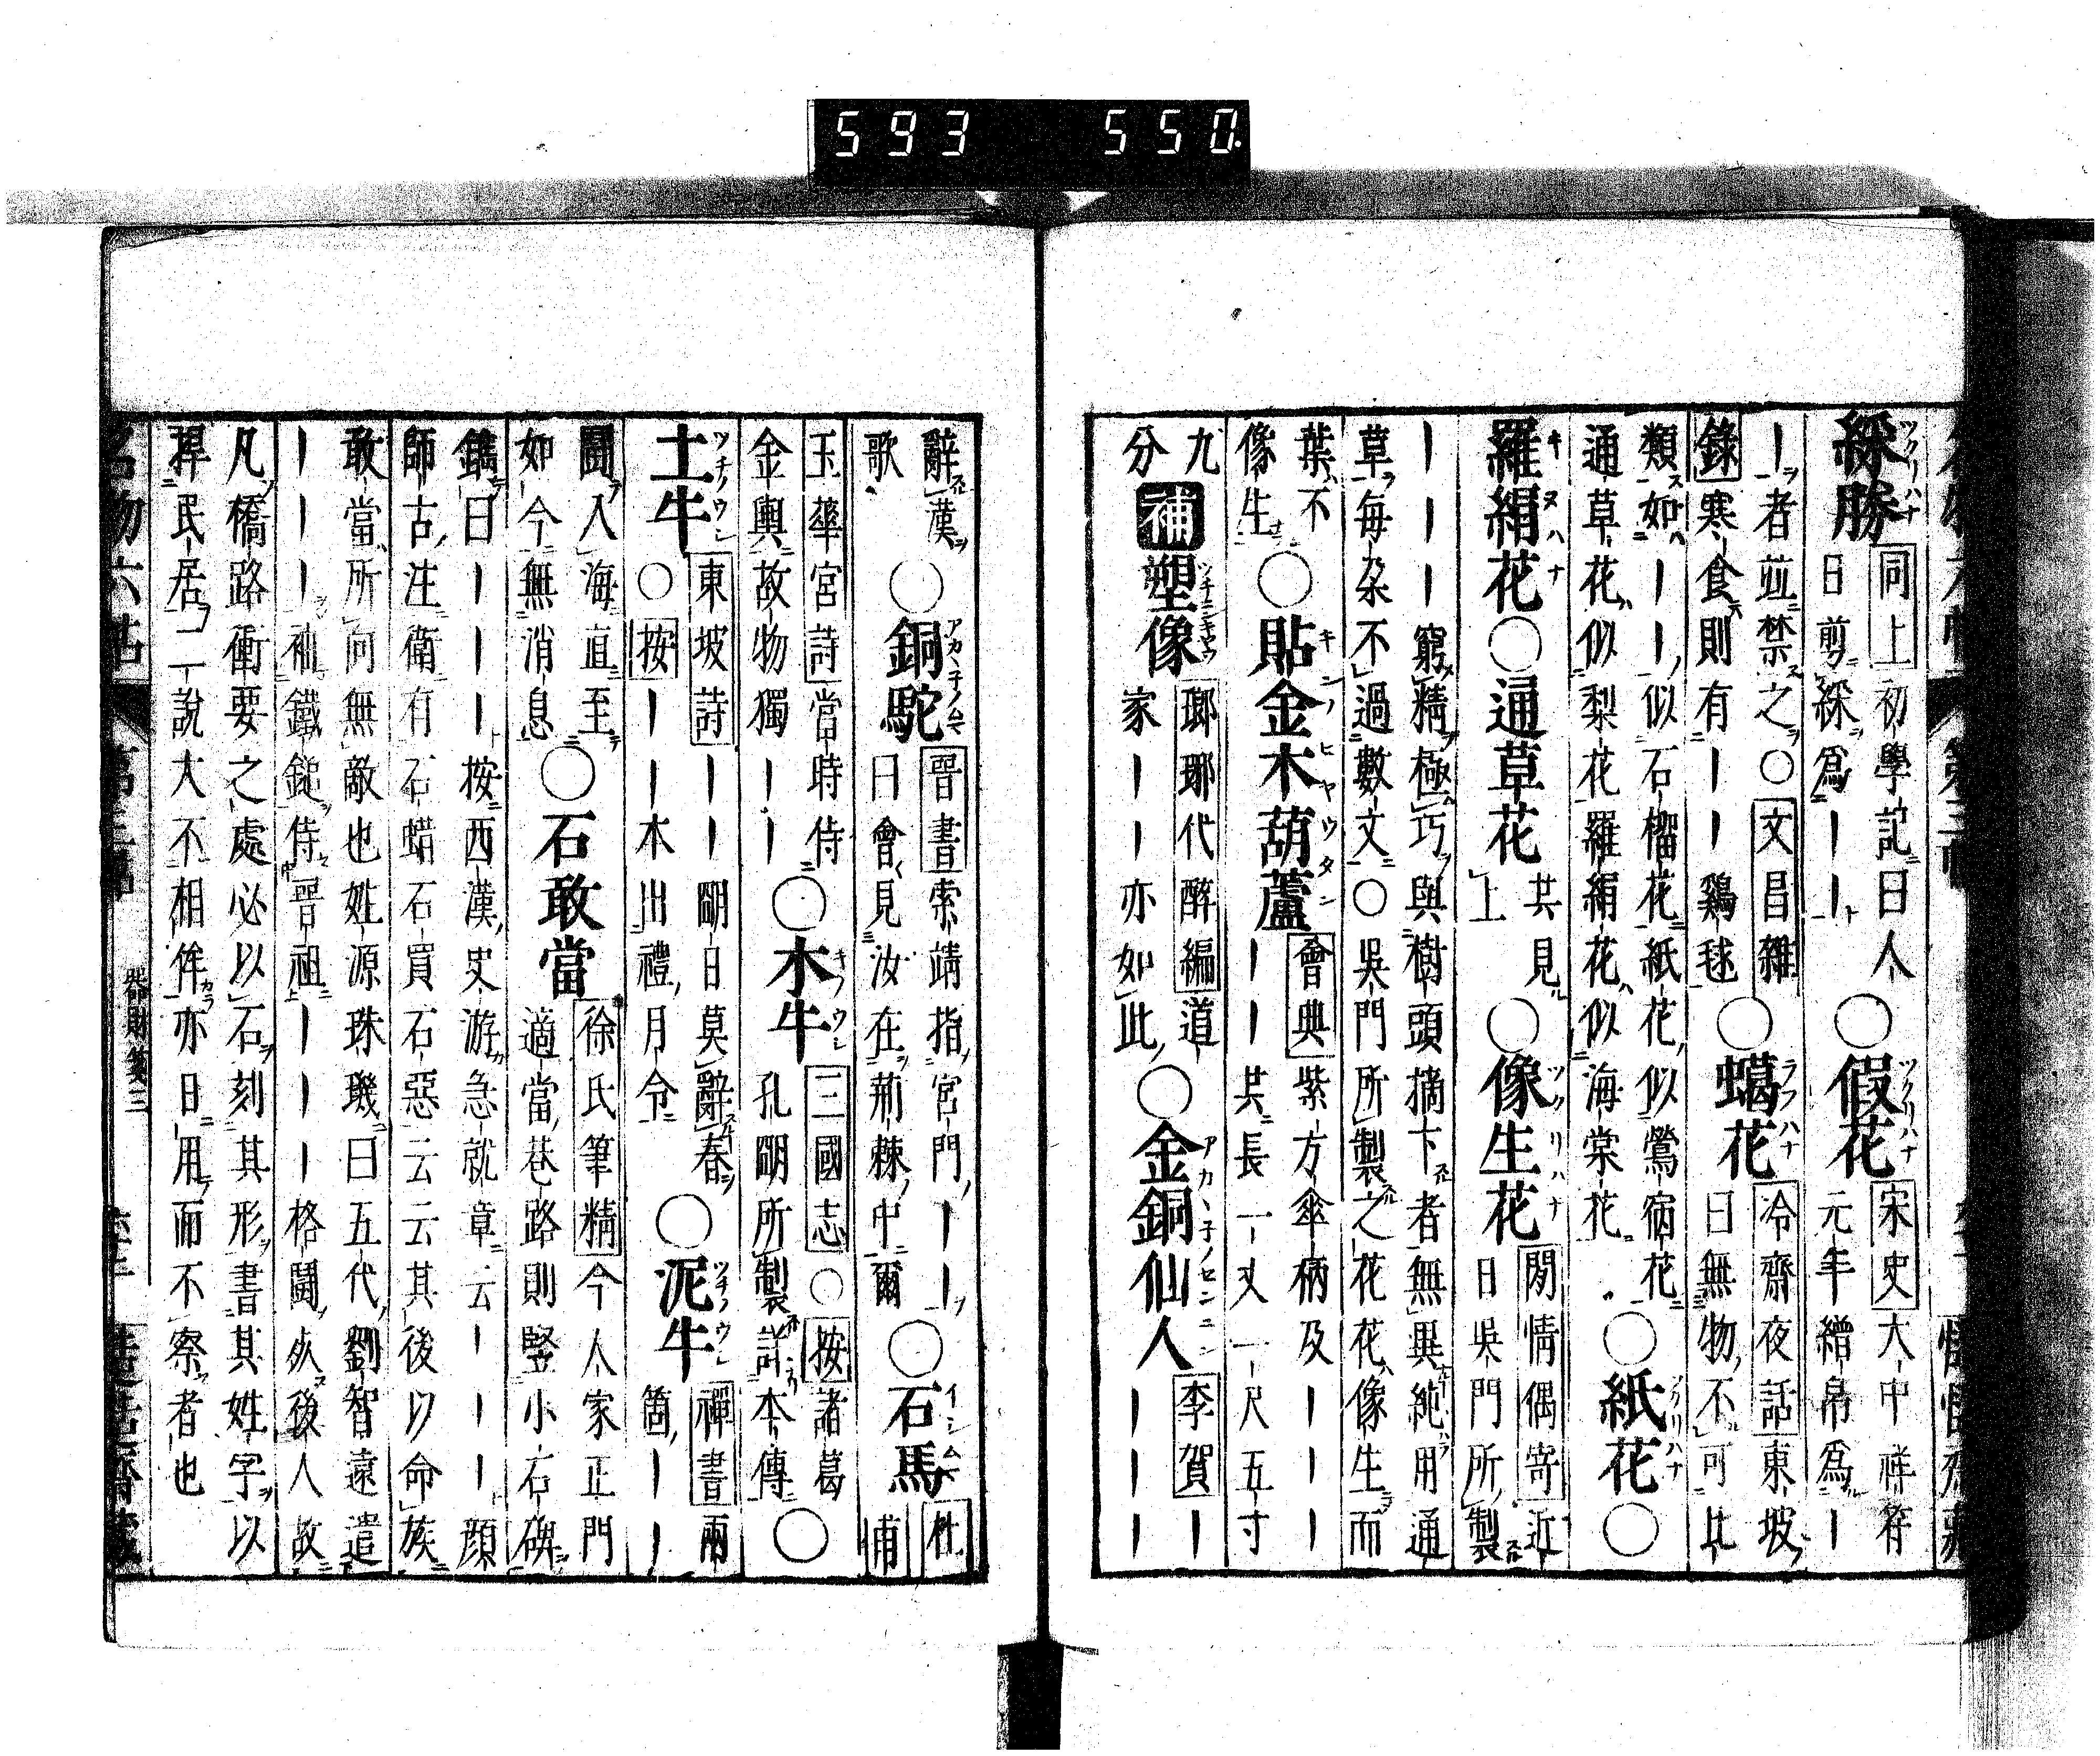 593 550.
綵勝 同上初學記曰人日剪綵爲ーー ○假花 宋史大中祥符元年繒帛爲ー
ー者並禁之○文昌雜錄寒食則有ーー鷄毬 ○蠟花 冷齋夜話東坡曰無物不可比
類如ーー似石榴花紙花似鶯宿花通草花似梨花羅絹花似海棠花 ○紙花 ○
羅絹花 ○通草花 共見上 ○像生花 閒情偶寄近日吳門所製
ーーー窮精極巧與樹頭摘下者無異純用通草每朶不過數文○吳門所製之花花像生而
葉不像生 ○貼金木葫蘆 會典紫方傘柄及ーーーーーー其長一丈一尺五寸
九分 補 塑像 瑯琊代醉編道家ーー亦如此 ○金銅仙人 李賀ーーーー
辭漢歌 ○銅駝 晉書索靖指宮門ーー曰會見汝在荊棘中爾 ○石馬 杜甫
玉華宮詩當時侍金輿故物獨ーー ○木牛 三國志○按諸葛孔明所製詳本傳 ○
土牛 東坡詩ーー明日莫辭春○按ーー木出禮月令 ○泥牛 禪書兩箇ーー
鬪入海直至如今無消息 ○石敢當 徐氏筆精今人家正門適當巷路則竪小石碑
鐫曰ーーー按西漢史游急就章云ーーー顔師古注衛有石蜡石買石惡云云其後以命族
敢當所向無敵也姓源珠璣曰五代劉智遠遣ーーー袖鐵鎚侍晉祖ーーー格鬪死後人故
凡橋路衝要之處必以石刻其形書其姓字以捍民居二說大不相侔亦日用而不察者也
名物六帖 第三帖 器財箋三